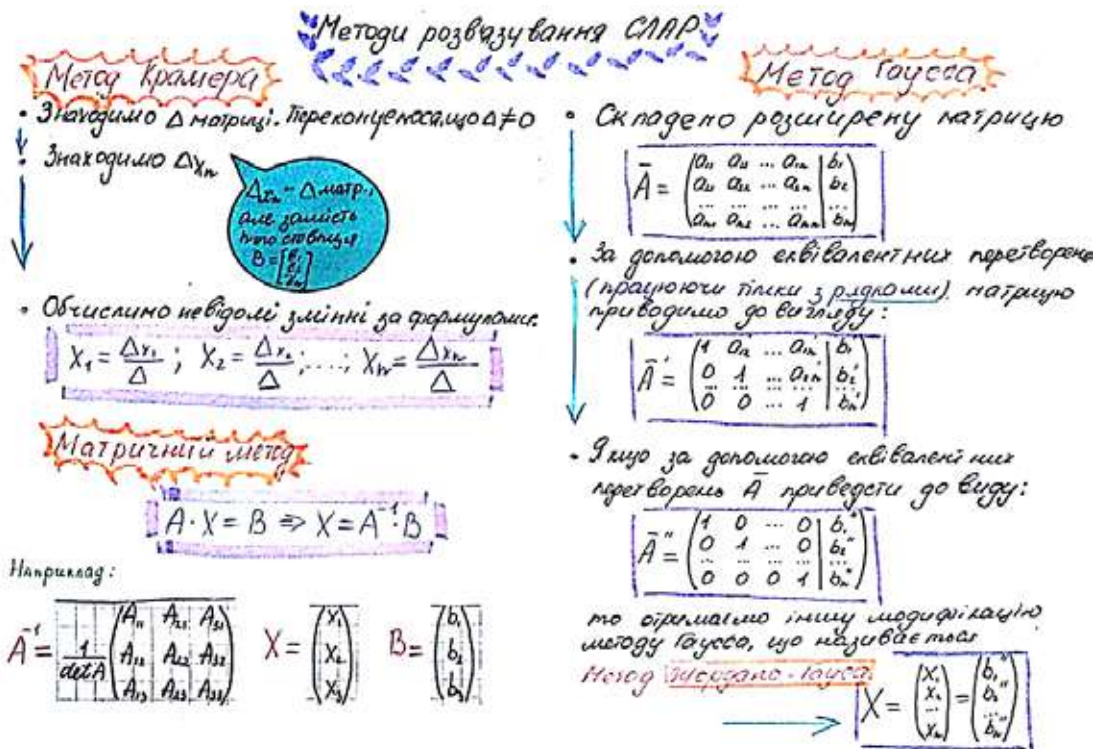 Методи розвазування СЛАР
Метод Крамера
• Знаходимо Δ матриці. Переконуємося, що Δ ≠ 0
• Знаходимо Δxₙ
Δxₙ - Δ матр.,
але замість
n-ого стовпця
B = [b₁ b₂ bₙ]
• Обчислимо невідомі змінні за формулами:
X₁ = Δx₁/Δ ; X₂ = Δx₂/Δ ; ...; Xₙ = Δxₙ/Δ
Матричний метод
A · X = B ⇒ X = A⁻¹ · B
Наприклад:
A⁻¹ = 1/det A (A₁₁ A₂₁ A₃₁
A₁₂ A₂₂ A₃₂
A₁₃ A₂₃ A₃₃)
X = (x₁ x₂ x₃)
B = (b₁ b₂ b₃)
Метод Гаусса
• Складемо розширену матрицю
Ā = (a₁₁ a₁₂ ... a₁ₙ | b₁
a₂₁ a₂₂ ... a₂ₙ | b₂
... ... ... ... | ...
aₙ₁ aₙ₂ ... aₙₙ | bₙ)
• За допомогою еквівалентних перетворень
(працюючи тільки з рядками) матрицю
приводимо до вигляду:
Ā' = (1 a₁₂' ... a₁ₙ' | b₁'
0 1 ... a₂ₙ' | b₂'
... ... ... ... | ...
0 0 ... 1 | bₙ')
• Якщо за допомогою еквівалентних
перетворень Ā привести до виду:
Ā'' = (1 0 ... 0 | b₁''
0 1 ... 0 | b₂''
... ... ... ... | ...
0 0 0 1 | bₙ'')
то отримаємо іншу модифікацію
методу Гаусса, що називається
Метод Жордано-Гауса
X = (x₁ x₂ ... xₙ) = (b₁'' b₂'' ... bₙ'')